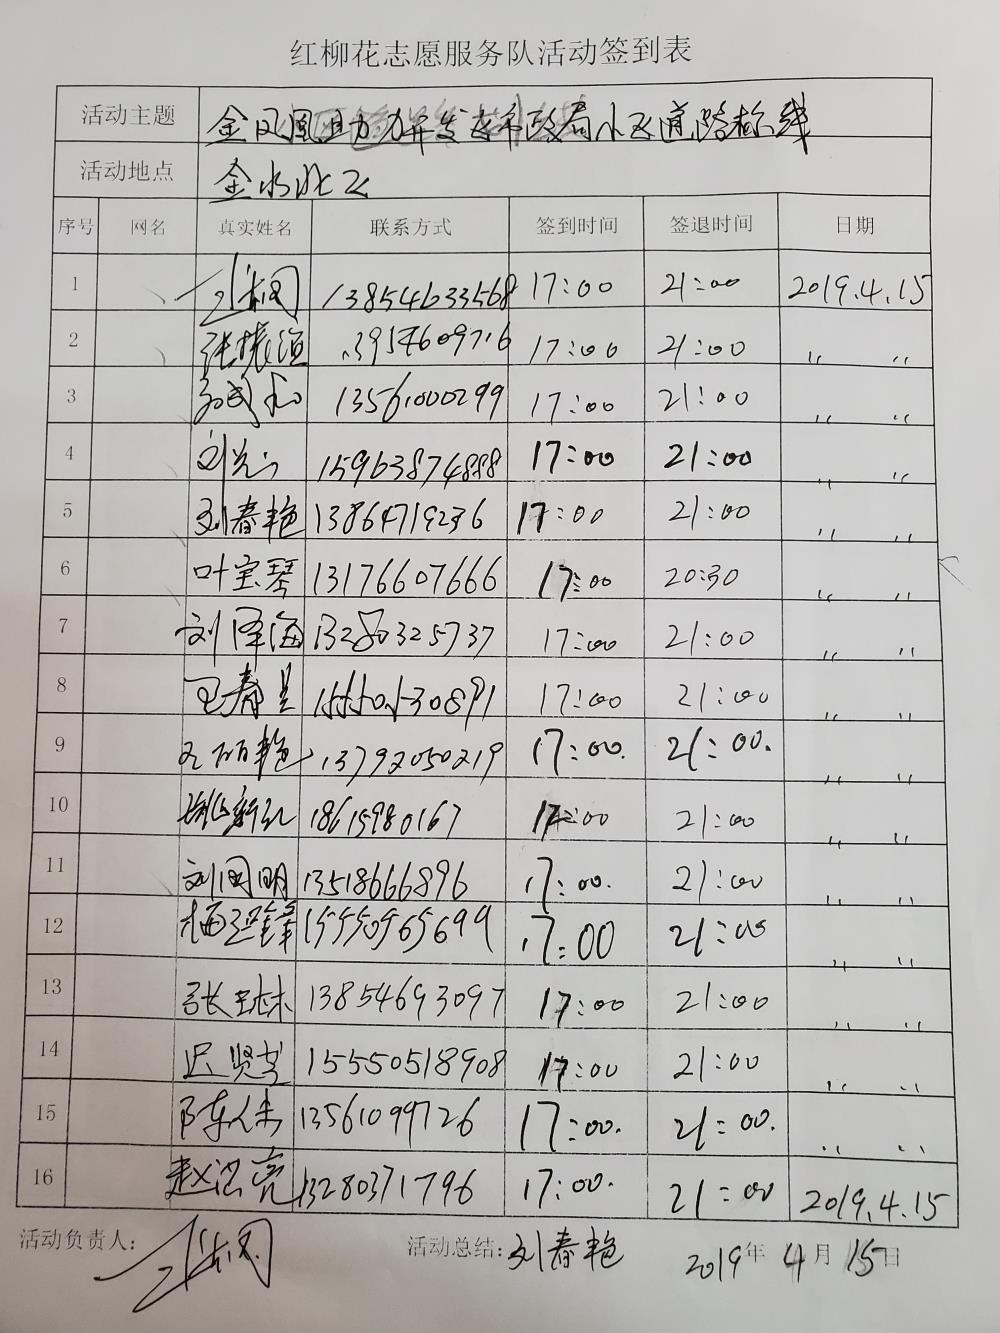 红柳花志愿服务队活动签到表
活动主题 金凤凰助力开发 市政局小区道路标线
活动地点 金水北区
序号 网名 真实姓名 联系方式 签到时间 签退时间 日期
1 13854633568 17:00 21:00 2019.4.15
2 张振 17:00 21:00 〃 〃
3 13561000299 17:00 21:00 〃 〃
4 刘 15963874888 17:00 21:00 〃 〃
5 刘春艳 13864719236 17:00 21:00 〃 〃
6 叶宝琴 13176607666 17:00 20:30 〃 〃
7 刘泽海 13280325737 17:00 21:00 〃 〃
8 王春 15550530891 17:00 21:00 〃 〃
9 王丽艳 13792050219 17:00. 21:00. 〃 〃
10 18615980167 17:00 21:00 〃 〃
11 刘国明 13518666896 17:00. 21:00 〃 〃
12 15550965699 17:00 21:00 〃 〃
13 张 13854693097 17:00 21:00 〃 〃
14 迟贤 15550518908 17:00 21:00 〃 〃
15 陈 13561099726 17:00. 21:00. 〃 〃
16 赵洪亮 13280371796 17:00. 21:00 2019.4.15
活动负责人: 活动总结: 刘春艳 2019年 4月 15日